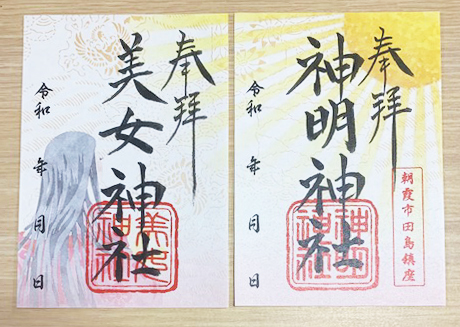 奉拝
美女神社
令和 年 月 日
美女
神社
奉拝
神明神社
令和 年 月 日
朝霞市田島鎮座
神明
神社